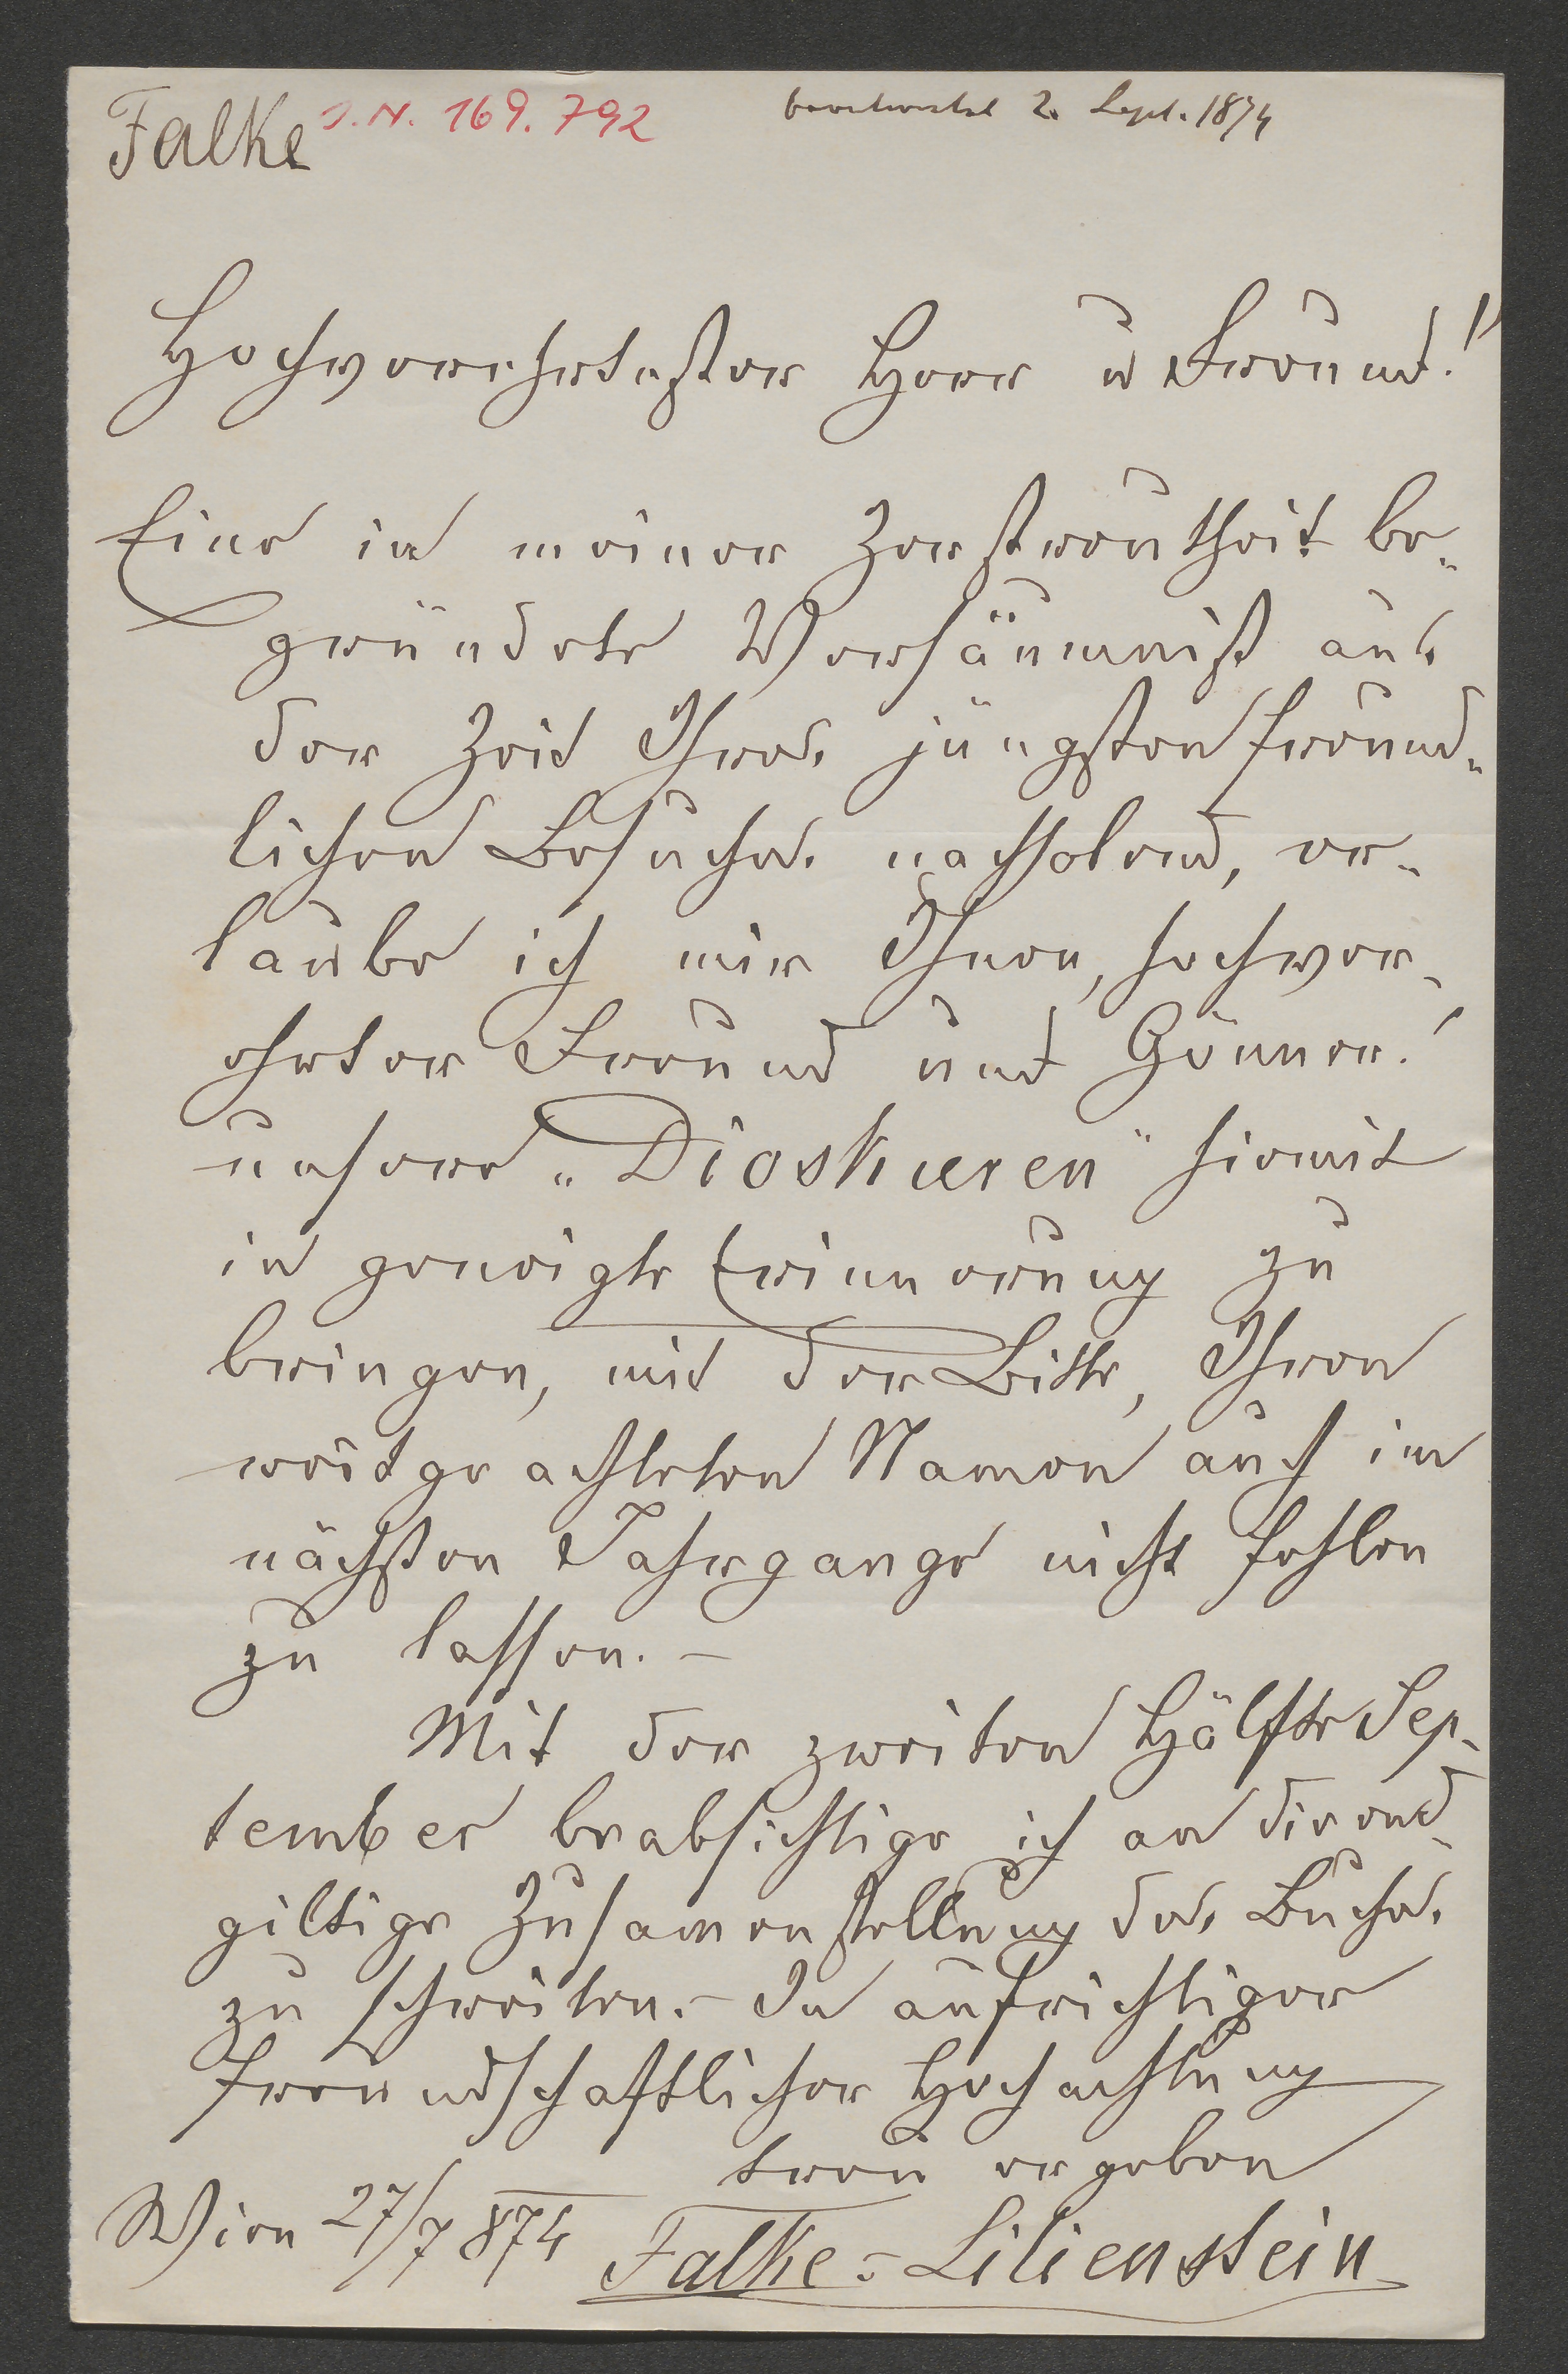 Falke
I.N. 169.792
beantwortet 2. Sept. 1874
Hochverehrtester Herr u Freund!
Eine in meiner Zerstreutheit be-
gründete Versäumniß aus
der Zeit Ihres jüngsten freund-
lichen Besuches nachholend, er-
laube ich mir Ihnen, hochver-
ehrter Freund und Gönner!
unsere „Dioskuren" hiemit
in geneigte Erinnerung zu
bringen, mit der Bitte, Ihren
weitgeachteten Namen auch im
nächsten Jahrgange nicht fehlen
zu lassen. –
Mit der zweiten Hälfte Sep-
tember beabsichtige ich an die end-
giltige Zusamenstellung des Buches
zu schreiten. – In aufrichtiger
freundschaftlicher Hochachtung
treu ergeben
Wien 27/7 874
Falke-Lilienstein